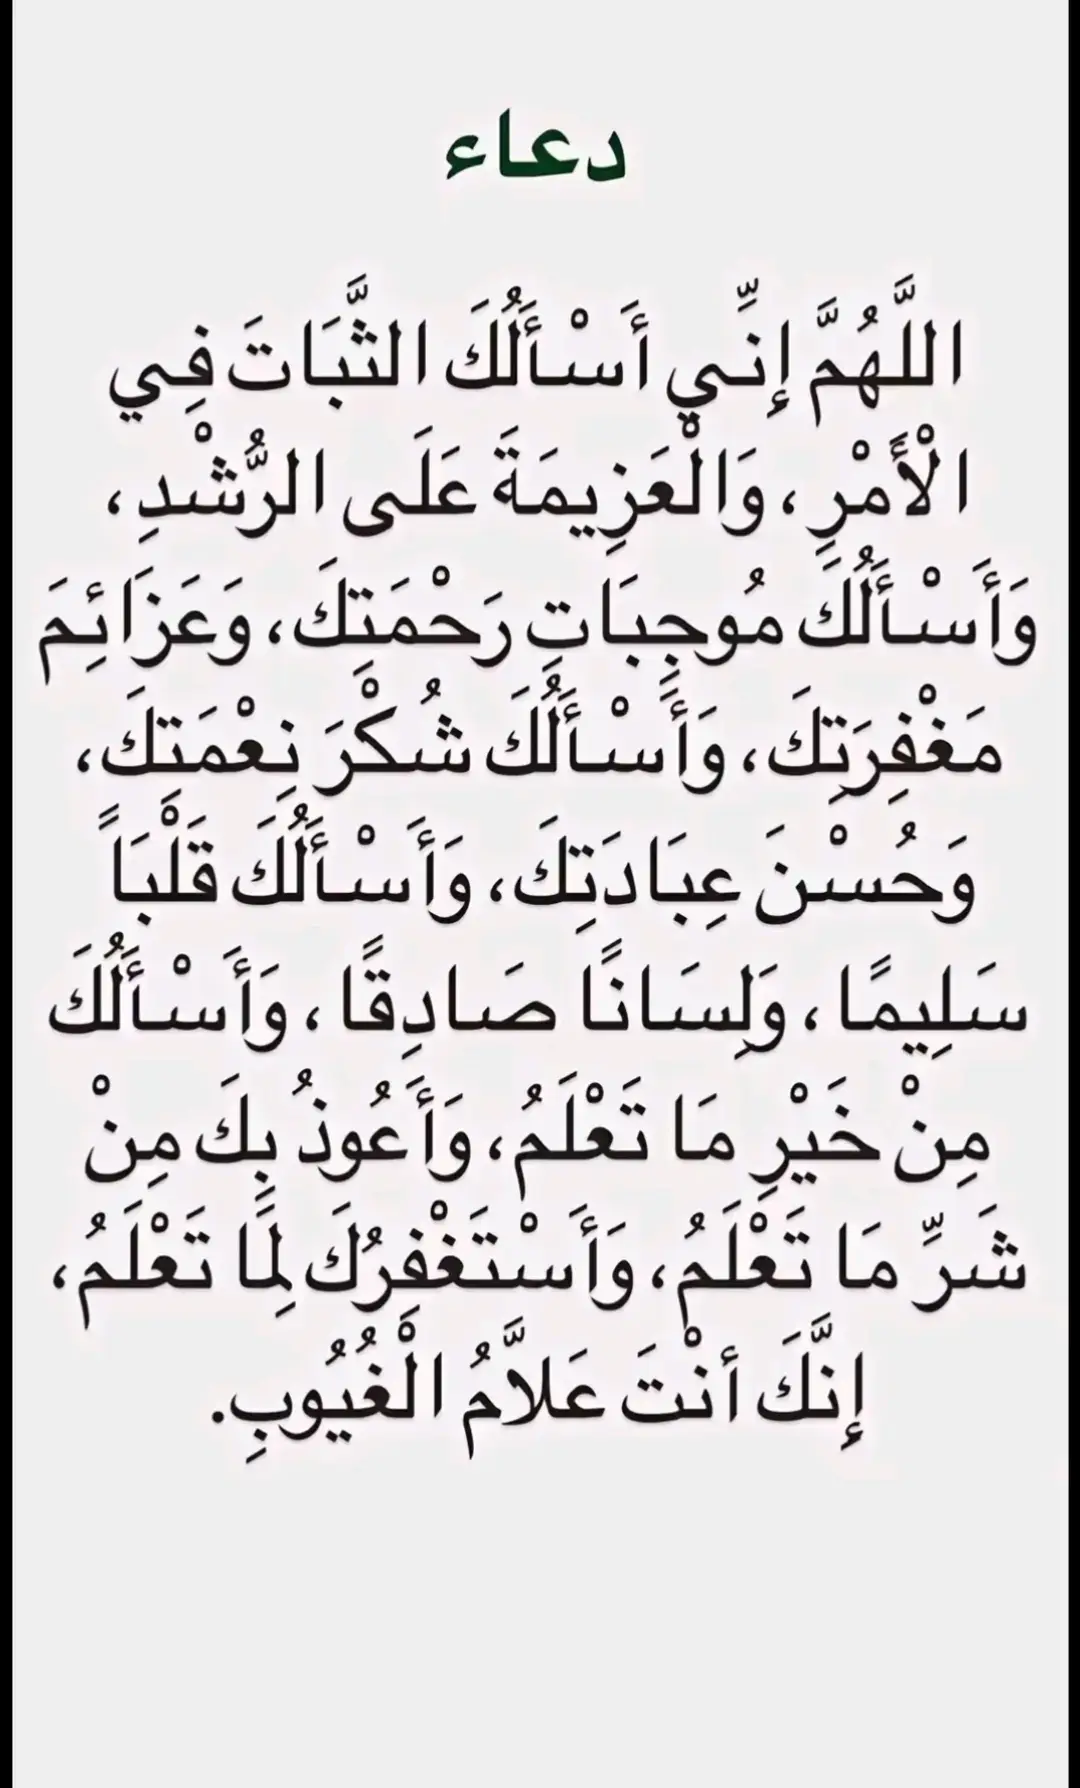 دعاء
اللَّهُمَّ إِنِّي أَسْأَلُكَ الثَّبَاتَ فِي
الْأَمْرِ، وَالْعَزِيمَةَ عَلَى الرُّشْدِ،
وَأَسْأَلُكَ مُوجِبَاتِ رَحْمَتِكَ، وَعَزَائِمَ
مَغْفِرَتِكَ، وَأَسْأَلُكَ شُكْرَ نِعْمَتِكَ،
وَحُسْنَ عِبَادَتِكَ، وَأَسْأَلُكَ قَلْبَاً
سَلِيمًا، وَلِسَانًا صَادِقًا، وَأَسْأَلُكَ
مِنْ خَيْرِ مَا تَعْلَمُ، وَأَعُوذُ بِكَ مِنْ
شَرِّ مَا تَعْلَمُ، وَأَسْتَغْفِرُكَ لِمَا تَعْلَمُ،
إِنَّكَ أنْتَ عَلاَّمُ الْغُيُوبِ.